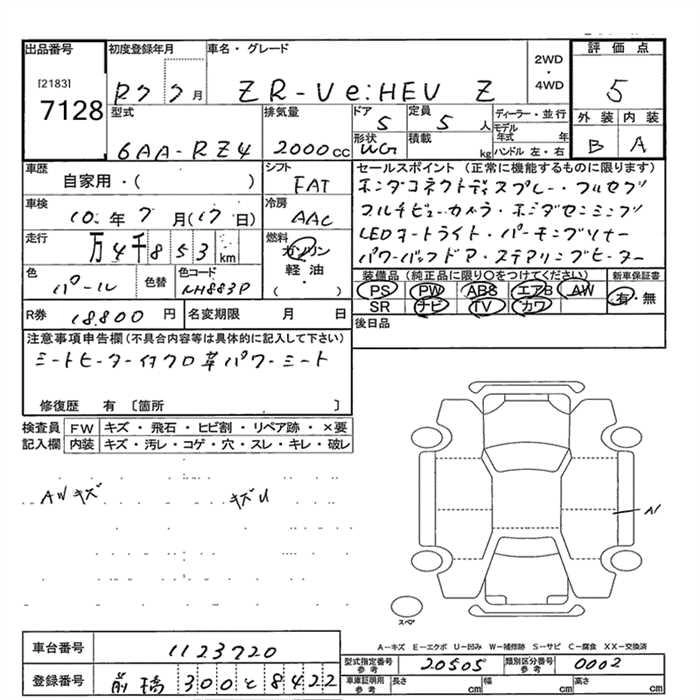 出品番号 初度登録年月 車名・グレード 評価点
[2183] 7128 R7 7月 ZR-V e:HEV Z 2WD・4WD 5
型式 排気量 ドア 定員 ディーラー・並行 外装 内装
6AA-RZ4 2000cc 5 5人 モデル年式 年 B A
形状 積載 WG kg ハンドル 左・右
車歴 シフト セールスポイント (正常に機能するものに限ります)
自家用・( ) FAT ホンダコネクトディスプレー・フルセグ
車検 冷房 マルチビューカメラ・ホンダセンシング
10年7月(17日) AAC LEDオートライト・パーキングソナー
走行 燃料 パワーバックドア・ステアリングヒーター
万4千853km ガソリン 軽油・( )
色 色替 色コード 装備品 (純正品に限り○をつけてください) 新車保証書
パール NH883P PS PW ABS エアB AW 有・無
SR ナビ TV カワ
R券 18,800円 名変期限 月 日 後日品
注意事項申告欄(不具合内容等は具体的に記入して下さい)
シートヒーター付クロ革パワーシート
修復歴 有 〔箇所 〕
検査員 FW キズ・飛石・ヒビ割・リペア跡・×要
記入欄 内装 キズ・汚レ・コゲ・穴・スレ・キレ・破レ
AWキズ キズU
A1
スペア
A-キズ E-エクボ U-凹み W-補修跡 S-サビ C-腐食 XX-交換済
車台番号 1123720 型式指定番号 参考 20505 類別区分番号 参考 0002
登録番号 前橋 300 と 8422 車庫証明用 参考 長さ cm 幅 cm 高さ cm